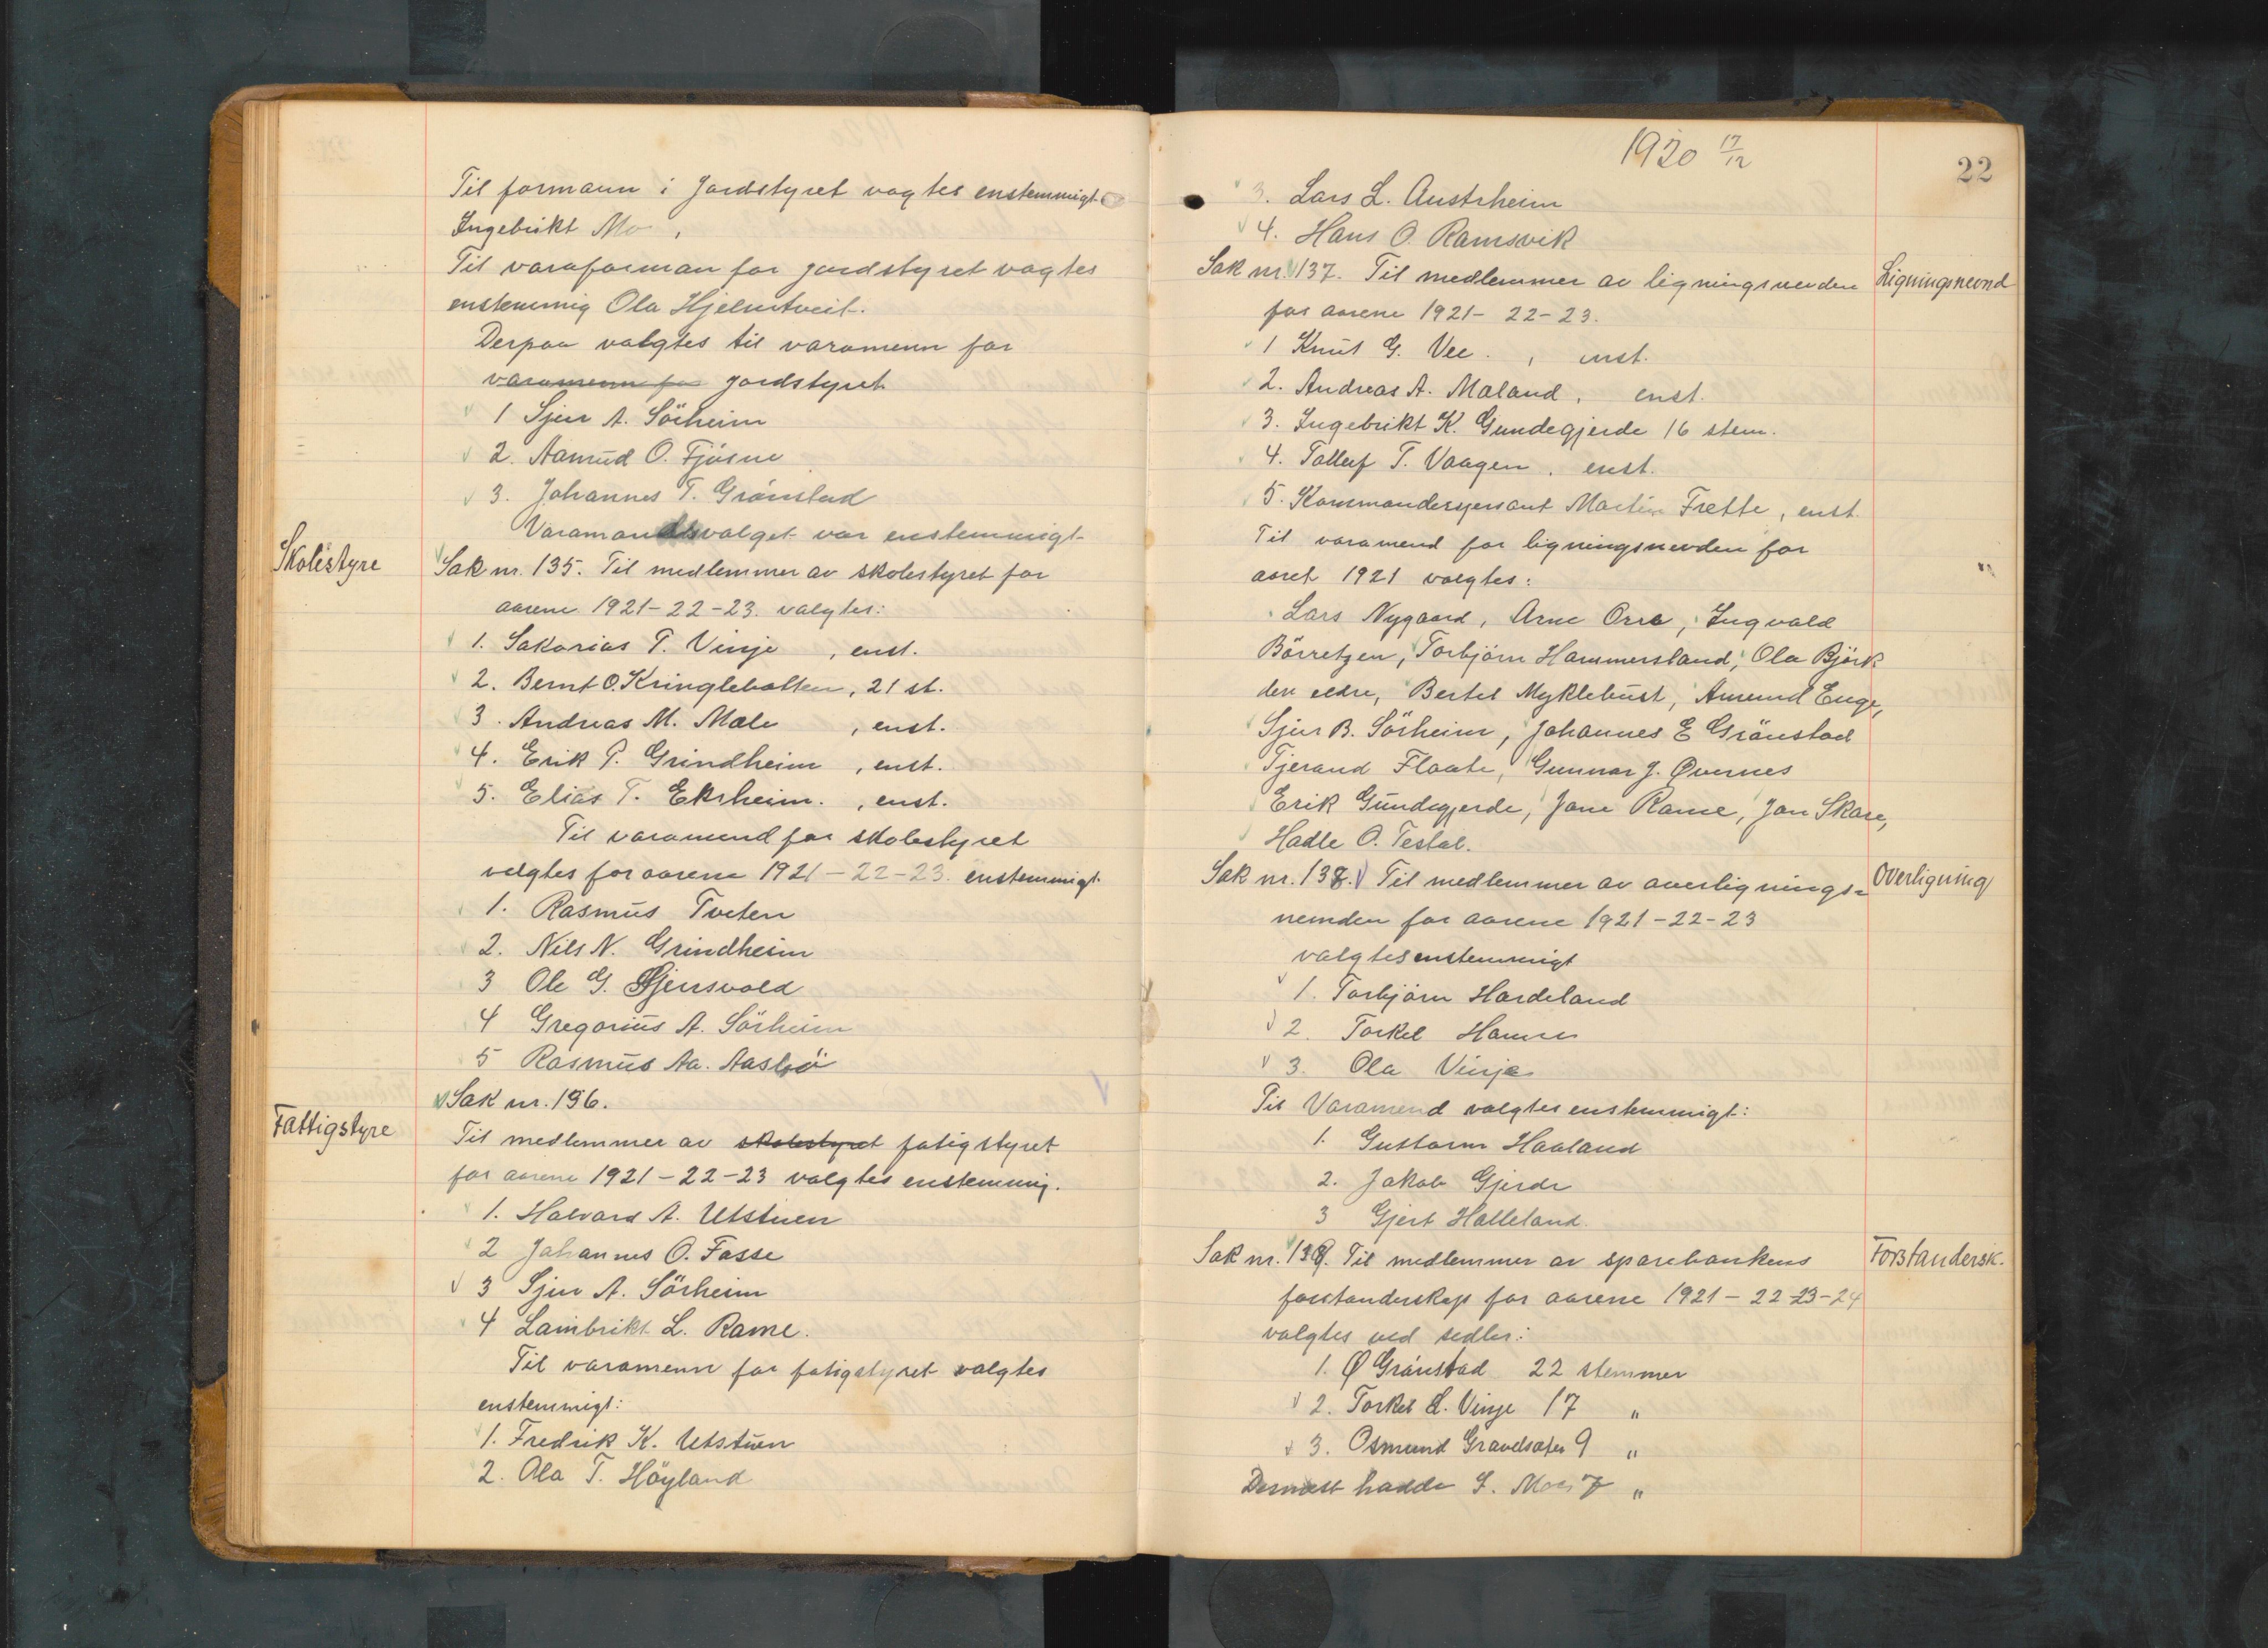 Til formann i Jordstyret vagtes enstemmigt
Ingebrikt Mo.
Til varaforman for jordstyret vagtes
enstemmig Ola Hjelmtveit.
Derpaa valgtes til varamenn for
varamenn for jordstyret
1 Sjur A. Sörheim
2. Aamund O. Fjösne
3. Johannes T. Grönstad
Varamandsvalget var enstemmigt
Skolestyre
Sak nr. 135. Til medlemmer av skolestyret for
aarene 1921-22-23. valgtes:
1. Sakarias T. Vinje, enst.
2. Bernt O. Kringlebotten, 21 st.
3. Andreas M. Male, enst.
4. Erik P. Grindheim, enst.
5. Elias T. Ekrheim., enst.
Til varamend for skolestyret
velgtes for aarene 1921-22-23. enstemmigt.
1. Rasmus Tveten
2. Nils N. Grindheim
3 Ole G. Gjersvold
4 Gregorius A. Sörheim
5 Rasmus Aa. Aasbö
Fattigstyre
Sak nr. 136.
Til medlemmer av skolestyret fatigstyret
for aarene 1921-22-23 valgtes enstemmig.
1. Halvard A. Utstuen
2 Johannes O. Fosse
3 Sjur A. Sörheim
4 Lambrikt L. Rame.
Til varamenn for fatigstyret valgtes
enstemmigt:
1. Fredrik K. Utstuen
2. Ola T. Höyland
1920 17/12
22
3. Lars L. Austrheim
4. Hans O. Ramsvik
Sak nr. 137. Til medlemmer av ligningsnevden
Ligningsnevnd
for aarene 1921-22-23.
1 Knut G. Vee., enst.
2. Andreas A. Maland, enst.
3. Ingebrikt K. Gundegjerde 16 stem.
4. Tollef T. Vaagen, enst.
5. Kommandersjersant Martin Frette, enst.
Til varamend for ligningsnevden for
aaret 1921 valgtes:
Lars Nygaard, Arne Orra, Ingvald
Börretzen, Torbjörn Hammersland, Ola Björk
den eldre, Bertel Myklebust, Amund Enge,
Sjur B. Sörheim, Johannes E Grönstad
Tjerand Flaate, Gunnar J. Øvernes
Erik Gundegjerde, Jone Rame, Jon Skare,
Hadle O. Testal.
Sak nr. 138. Til medlemmer av overlignings-
Overligning
nemden for aarene 1921-22-23
valgtes enstemmigt
1. Torbjörn Hardeland
2. Torkel Hamre
3. Ola Vinje
Til Varamend valgtes enstemmigt:
1. Guttorm Haaland
2. Jakob Gjerde
3 Gjert Halleland.
Sak nr. 139. Til medlemmer av sparebankens
Forstandersk.
forstanderskap for aarene 1921-22-23-24
valgtes ved sedler:
1. Ø Grönstad 22 stemmer
2. Torkel L. Vinje 17 "
3. Osmund Gravelsæter 9 "
Dernæst hadde I. Moe 7 "